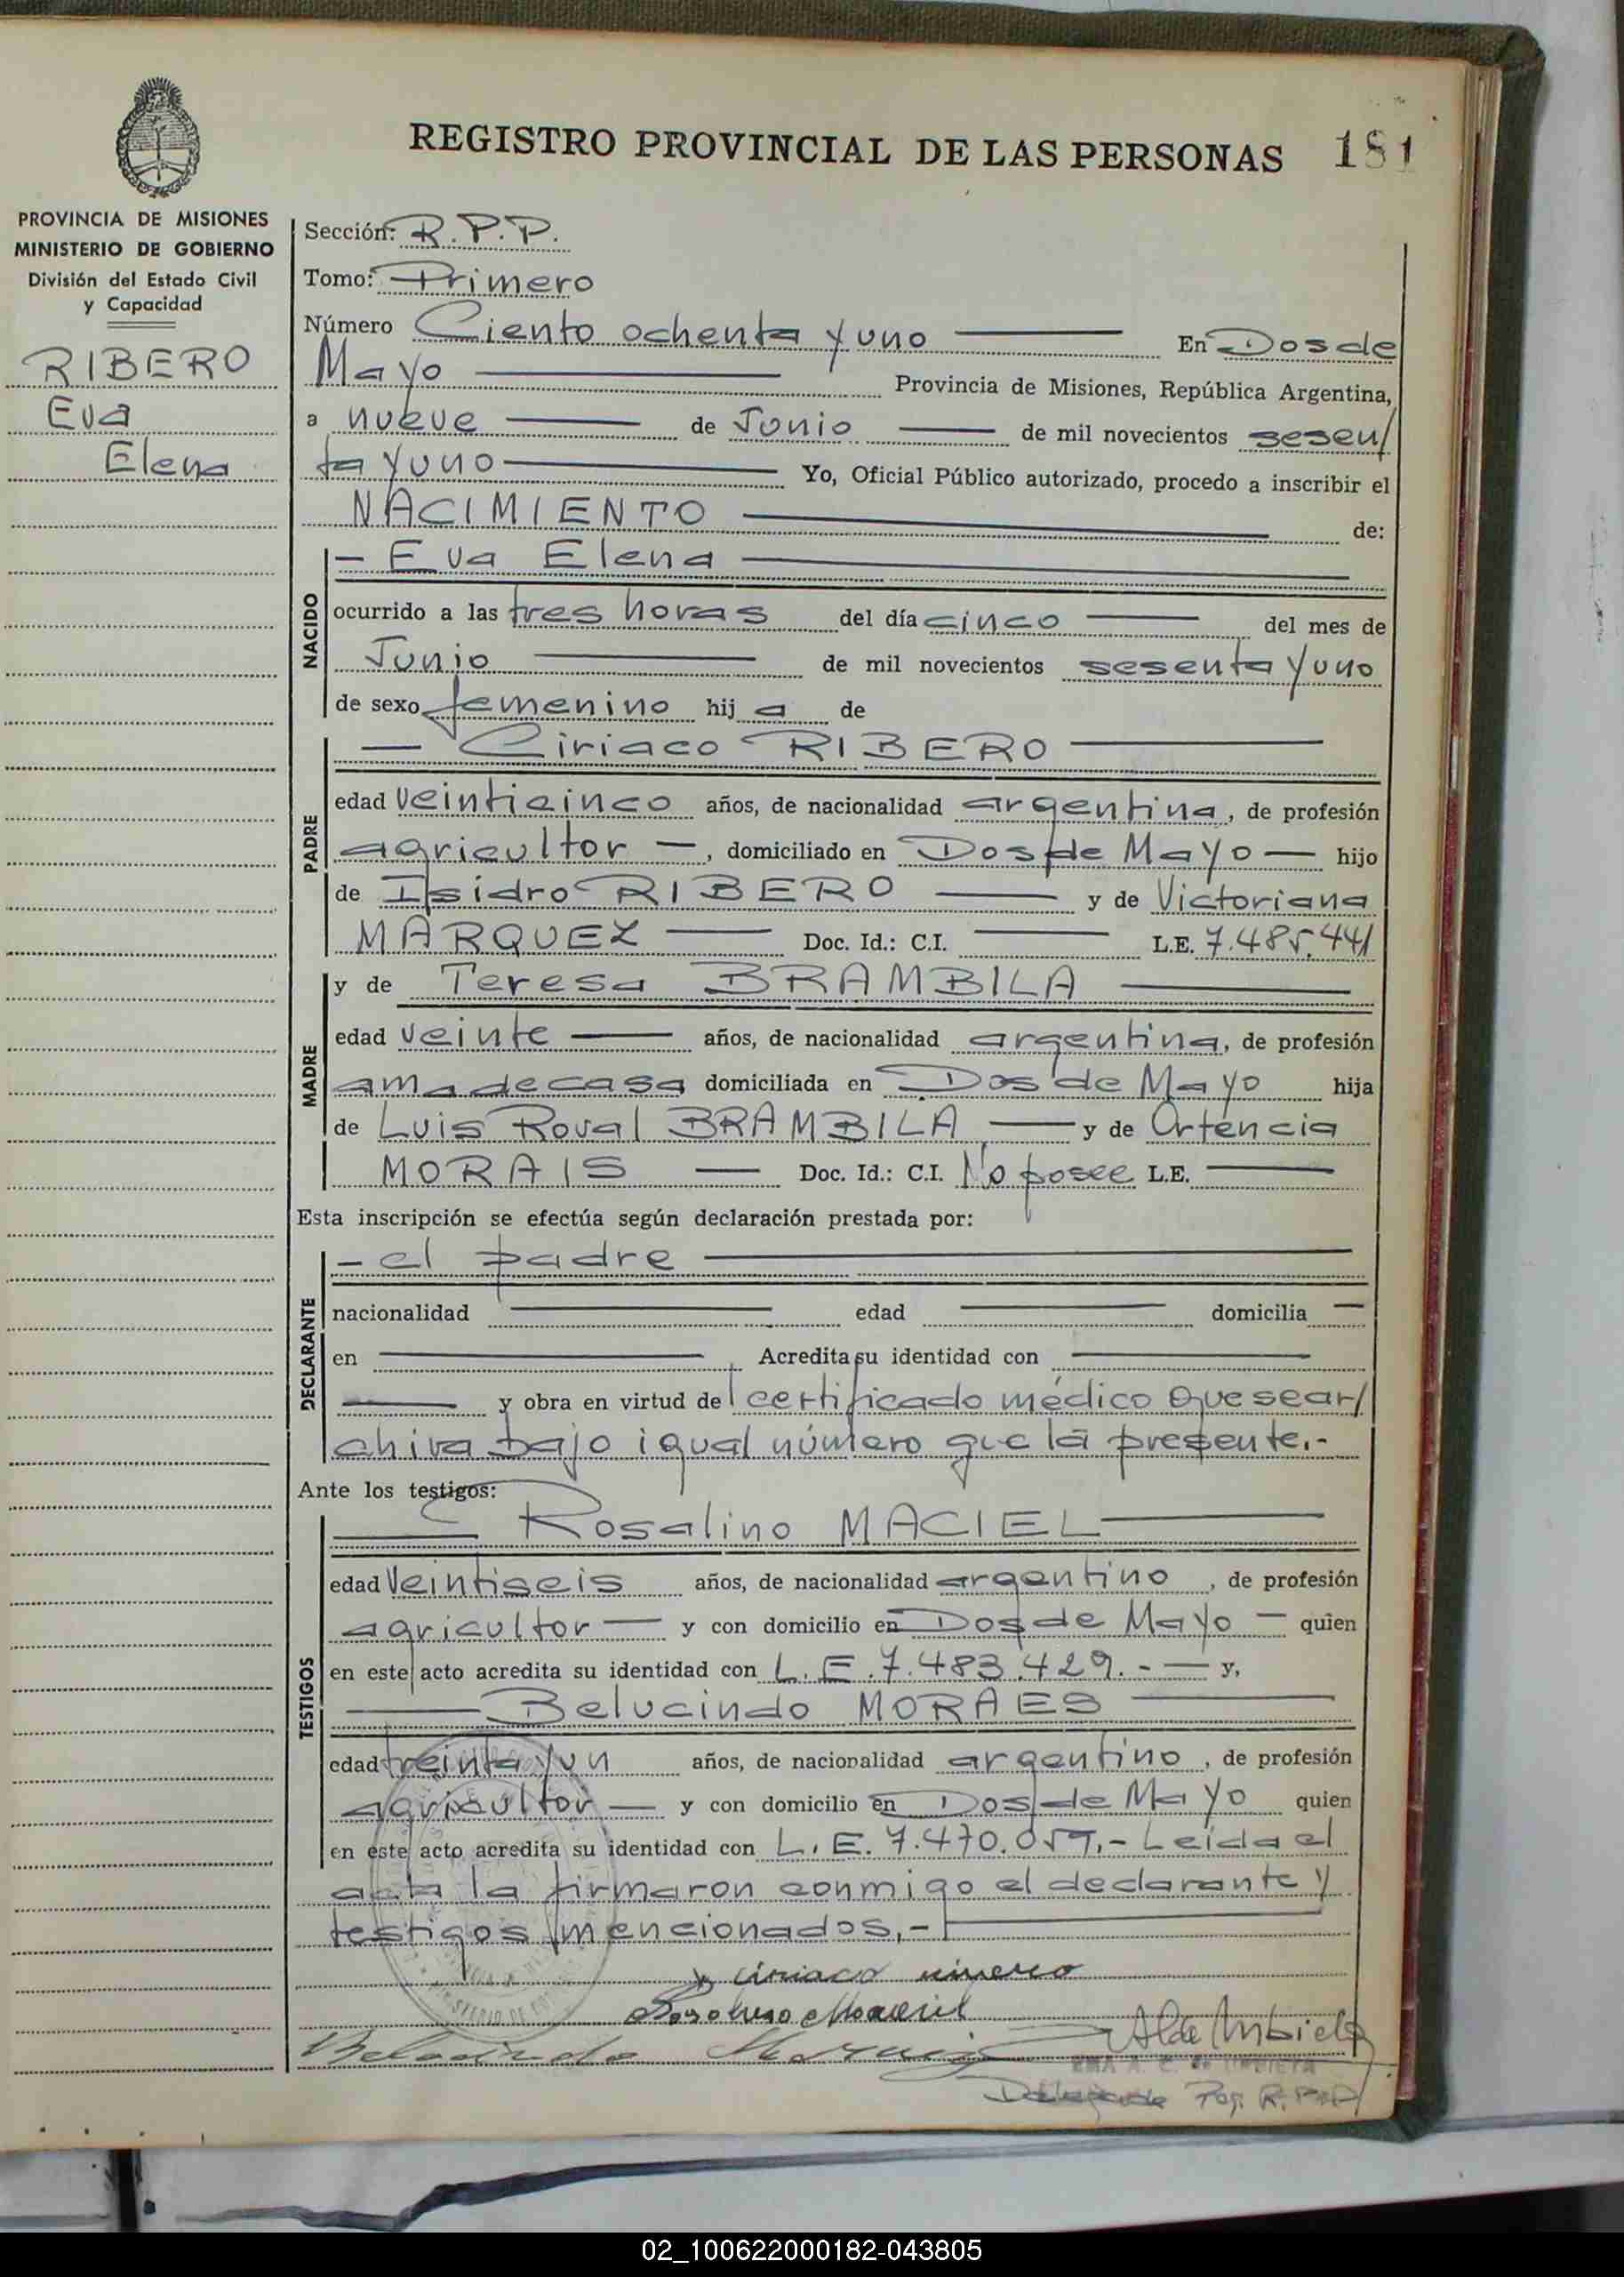 REGISTRO PROVINCIAL DE LAS PERSONAS 181
PROVINCIA DE MISIONES
MINISTERIO DE GOBIERNO
División del Estado Civil
y Capacidad
RIBERO
Eva
Elena
Sección: R.P.P.
Tomo: Primero
Número Ciento ochenta y uno En Dos de
Mayo Provincia de Misiones, República Argentina,
a nueve de Junio de mil novecientos sesen/
ta y uno Yo, Oficial Público autorizado, procedo a inscribir el
NACIMIENTO de:
NACIDO
- Eva Elena
ocurrido a las tres horas del día cinco del mes de
Junio de mil novecientos sesenta y uno
de sexo femenino hij a de
PADRE
Ciriaco RIBERO
edad veinticinco años, de nacionalidad argentina, de profesión
agricultor -, domiciliado en Dos de Mayo - hijo
de Isidro RIBERO y de Victoriana
MARQUEZ Doc. Id.: C.I. L.E. 7.485.441
MADRE
y de Teresa BRAMBILA
edad veinte años, de nacionalidad argentina, de profesión
ama de casa domiciliada en Dos de Mayo hija
de Luis Roval BRAMBILA y de Ortencia
MORAIS Doc. Id.: C.I. No posee L.E.
Esta inscripción se efectúa según declaración prestada por:
DECLARANTE
- el padre
nacionalidad edad domicilia
en Acredita su identidad con
y obra en virtud de certificado médico que se ar/
chiva bajo igual número que la presente.-
Ante los testigos:
TESTIGOS
Rosalino MACIEL
edad veintiseis años, de nacionalidad argentino, de profesión
agricultor y con domicilio en Dos de Mayo - quien
en este acto acredita su identidad con L.E. 7.483.429.- y,
Belucindo MORAES
edad treinta y un años, de nacionalidad argentino, de profesión
agricultor y con domicilio en Dos de Mayo quien
en este acto acredita su identidad con L.E. 7.470.059.- Leida el
acta la firmaron conmigo el declarante y
testigos mencionados.-
02_100622000182-043805